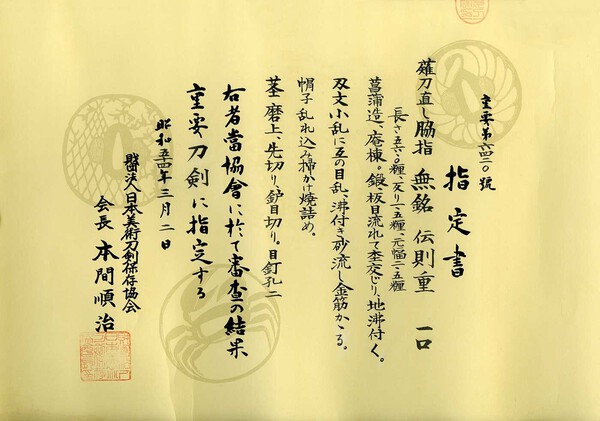 重要第六四一〇號
指定書
薙刀直し脇指 無銘 伝則重 一口
長さ五六・〇糎、反り一・五糎、元幅二・五糎
菖蒲造、庵棟。鍛、板目流れて杢交じり、地沸付く。
刃文小乱に互の目乱、沸付き砂流し金筋かゝる。
帽子乱れ込み掃かけ焼詰め。
茎磨上、先切り、鑢目切り。目釘孔二
右者當協會に於て審査の結果
重要刀剣に指定する
昭和五四年三月二日
財団法人日本美術刀剣保存協会
会長 本間順治